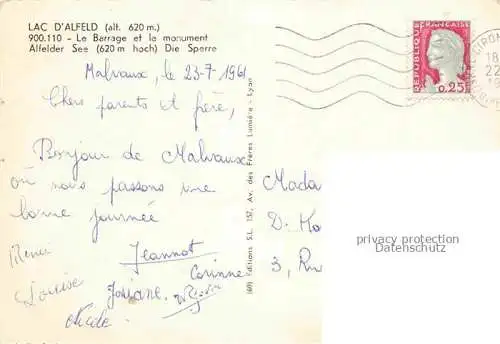 LAC D'ALFELD (alt. 620 m.)
900.110 - Le Barrage et le monument
Alfelder See (620 m hoch) Die Sperre
Malvaux, le 23-7-1961
Chers parents et frère,
Bonjour de Malvaux
où nous passons une
bonne journée
René
Jeannot
Louise
Corinne
Josiane
Nicole
(69) Editions S.L. 157, Av. des Frères Lumière - Lyon
REPUBLIQUE FRANÇAISE
0,25
GIROM
18
22
19
Mada
D. Ko
3, Ru
privacy protection
Datenschutz